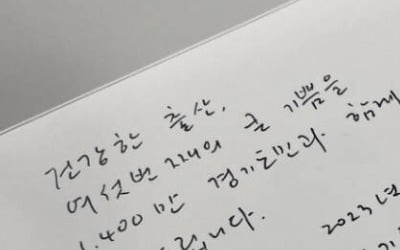 건강한 출산,
여섯번째의 큰 기쁨을
1,400만 경기도민과 함께
립니다.
2023년